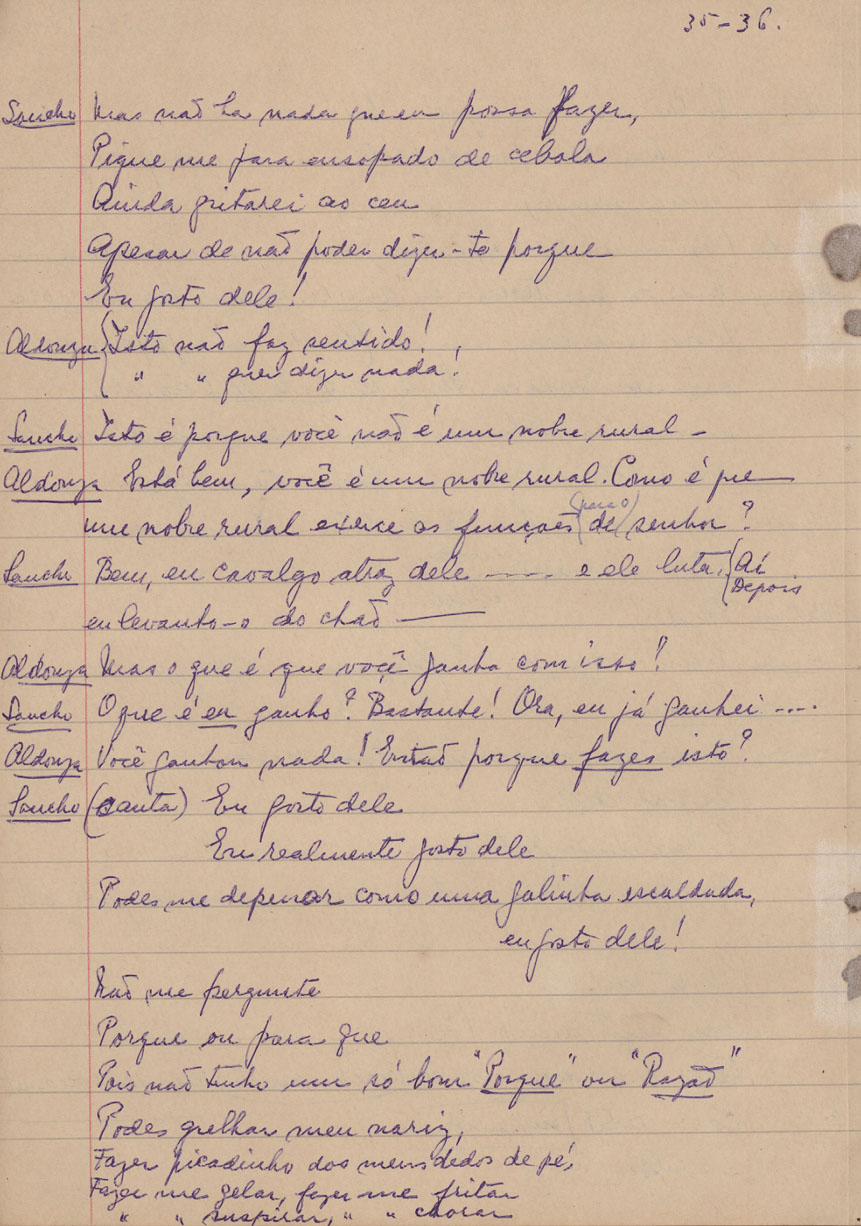 35-36.
Sancho Mas não ha nada que eu possa fazer,
Pique me para ensopado de cebola
Ainda gritarei ao ceu
Apesar de não poder dizer-te porque
Eu gosto dele!
Aldonza Isto não faz sentido!
" " quer dizer nada!
Sancho Isto é porque você não é um nobre rural -
Aldonza Está bem, você é um nobre rural. Como é que
(para o)
um nobre rural exerce as funções de senhor?
Sancho Bem, eu cavalgo atraz dele ---- e ele luta. Aí
Depois
eu levanto-o do chão ——
Aldonza Mas o que é que você ganha com isto!
Sancho O que é eu ganho? Bastante! Ora, eu já ganhei ----
Aldonza Você ganhou nada! Então porque fazes isto?
Sancho (canta) Eu gosto dele
Eu realmente gosto dele
Podes me depenar como uma galinha escaldada,
eu gosto dele!
Não me pergunte
Porque ou para que
Pois não tenho um só bom "Porque" ou "Razão"
Podes grelhar meu nariz,
Fazer picadinho dos meus dedos de pé,
Fazer me gelar, fazer me fritar
" " suspirar, " " chorar